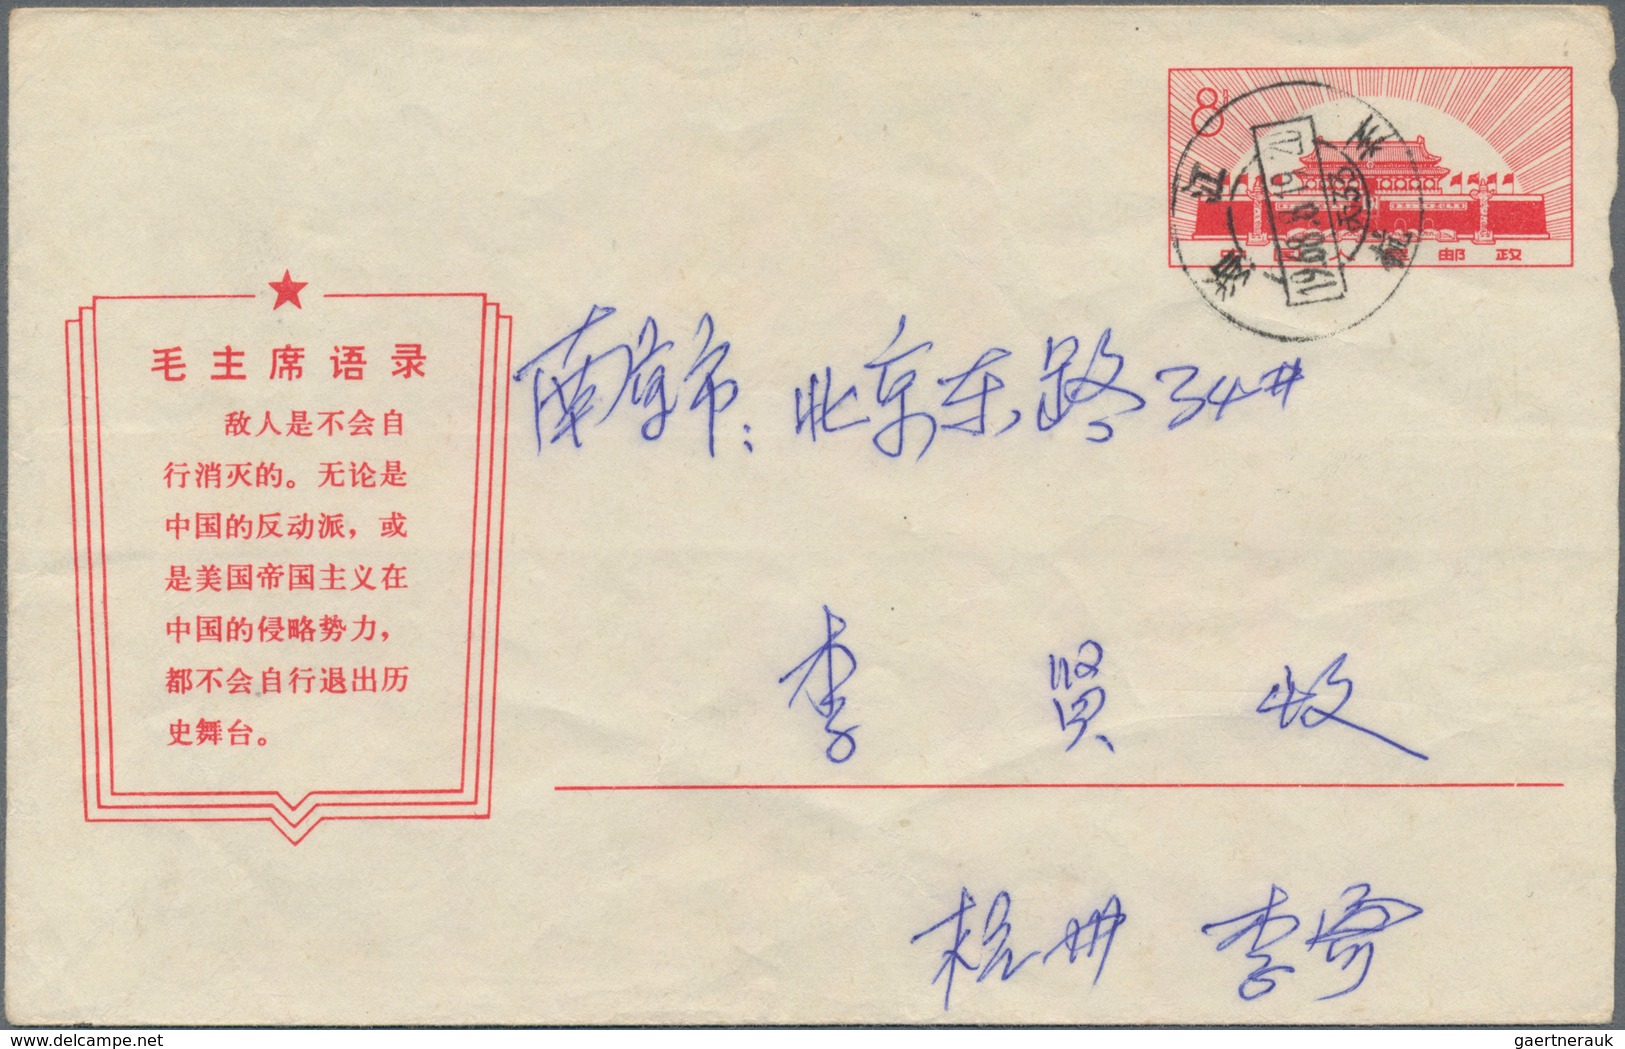 8
中国人民邮政
浙江
杭州
1968.8.19.20
毛主席语录
敌人是不会自
行消灭的。无论是
中国的反动派，或
是美国帝国主义在
中国的侵略势力，
都不会自行退出历
史舞台。
南京市：北京东路34#
李贤收
杭州 李寄
www.delcampe.net
gaertnerauk